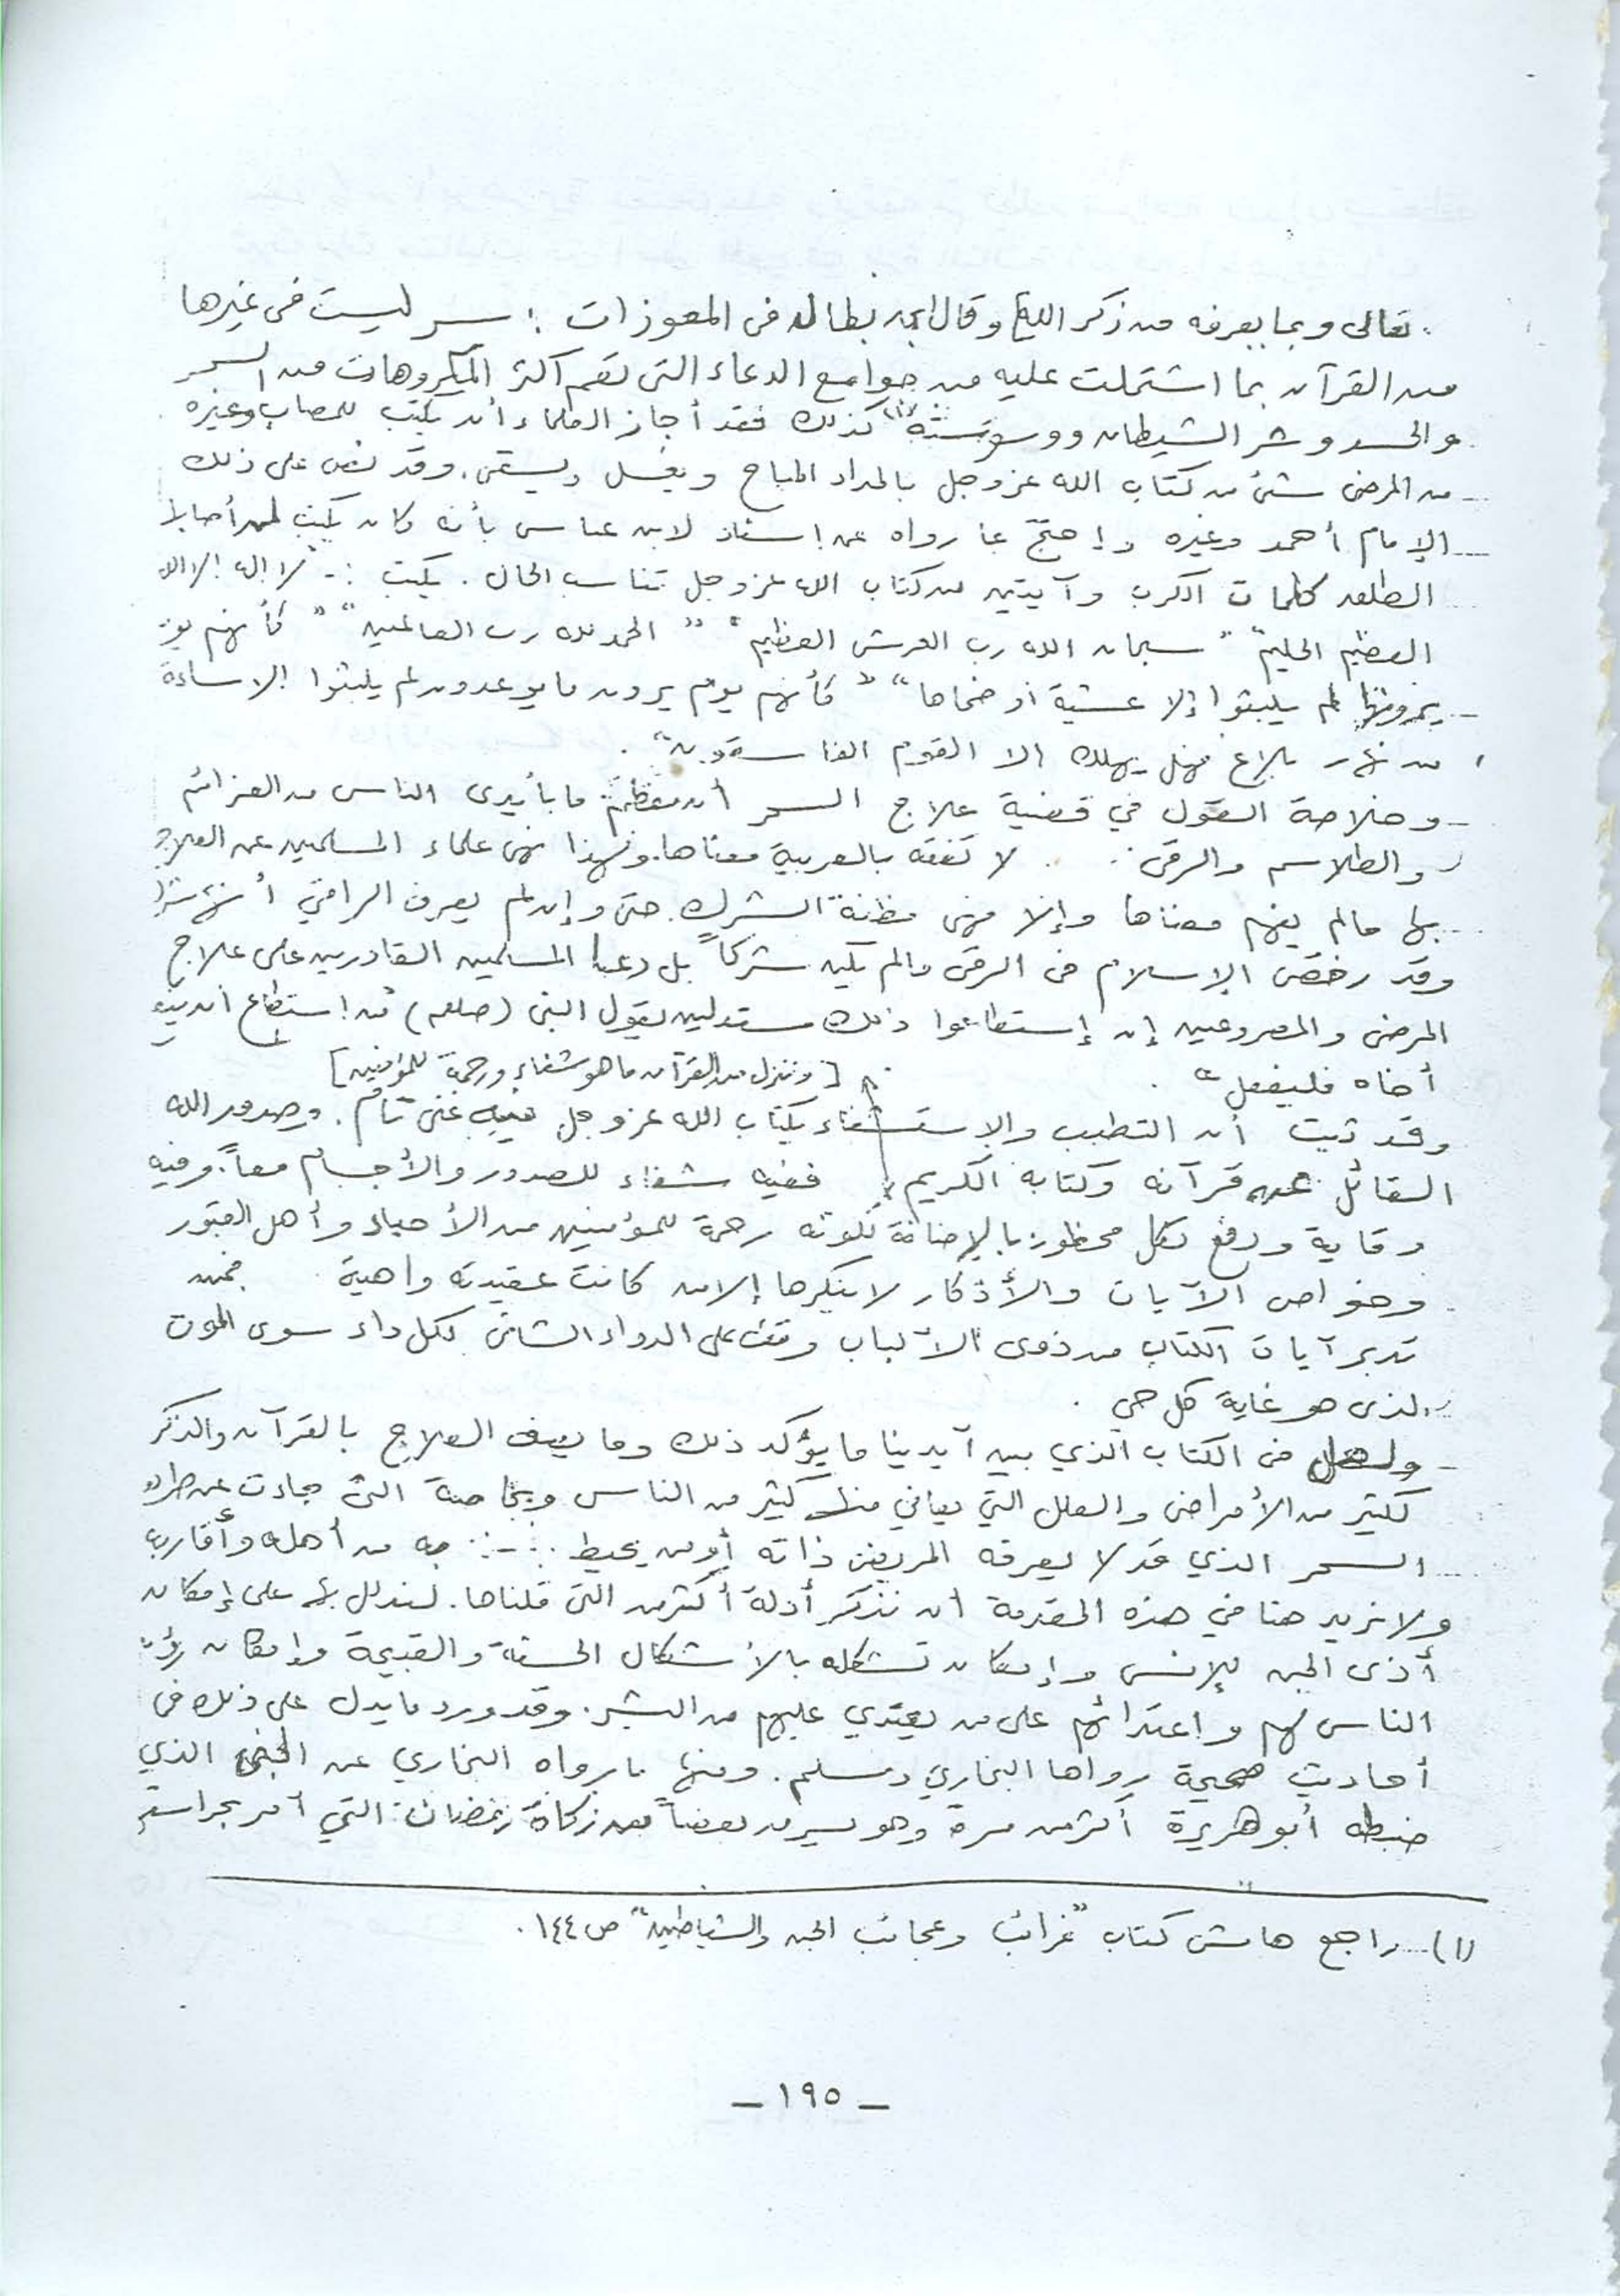 تعالى وبما يعرفه من ذكر الله وقال ابن بطال فى المعوذات : سر ليست فى غيرها
من القرآن بما اشتملت عليه من جوامع الدعاء التى تعم أكثر المكروهات من السحر
والحسد وشر الشيطان ووسوسته (١) كذلك فقد أجاز العلماء أن يكتب للمصاب وغيره
من المرضى شئ من كتاب الله عز وجل بالمداد المباح ويغسل ويسقى . وقد نص على ذلك
الإمام أحمد وغيره وإحتجّ بما رواه عن لابن عباس بأنه كان يكتب لمن أصابها
الطلق كلمات الكرب وآيتين من كتاب الله عز وجل تناسب الحال . يكتب :- "لا إله إلا الله
العظيم الحليم" "سبحان الله رب العرش العظيم" "الحمد لله رب العالمين" "كأنهم يوم
يرونها لم يلبثوا إلا عشية أو ضحاها" "كأنهم يوم يرون ما يوعدون لم يلبثوا إلا ساعة
من نهار بلاغ فهل يهلك الا القوم الفاسقون" .
- وخلاصة القول في قضية علاج السحر أن معظم ما بأيدى الناس من العزائم
والطلاسم والرقى . لا تفقه بالعربية معناها. ولهذا نهى علماء المسلمين عن العلاج
بها مالم يفهم معناها وإلا فهى مظنة الشرك. حتى وإن لم يعرف الراقي أنها شرك
وقد رخّص الإسلام فى الرقى مالم يكن شركاً بل دعا المسلمين القادرين على علاج
المرضى والمصروعين إن إستطاعوا ذلك مستدلين بقول النبى (صلعم) من استطاع أن ينفع
أخاه فليفعل" . [وننزل من القرآن ما هو شفاء ورحمة للمؤمنين]
وقد ثبت أن التطبب والإستشفاء بكتاب الله عز وجل فيه غنى تام . وصدق الله
القائل عن قرآنه وكتابه الكريم ففيه شفاء للصدور والأجسام معاً. وفيه
وقاية ودفع لكل محظور بالإضافة لكونه رحمة للمؤمنين من الأحياء وأهل القبور
وخواص الآيات والأذكار لا ينكرها إلا من كانت عقيدته واهية فمن
تدبر آيات الكتاب من ذوى الألباب وقف على الدواء الشافى لكل داء سوى الموت
الذى هو غاية كل حي .
- ولعل فى الكتاب الذي بين آيدينا ما يؤكد ذلك وما يصف العلاج بالقرآن والذكر
لكثير من الأمراض والعلل التي يعاني منها كثير من الناس وبخاصة التى جاءت عن طريق
السحر الذي قد لا يعرفه المريض ذاته أو من يحيط به من أهله وأقاربه
ولا نريد هنا في هذه المقدمة ان نذكر أدلة أكثر من التى قلناها. لندلل بها على إمكان
أذى الجن للإنس وإمكان تشكله بالأشكال الحسنة والقبيحة وإمكان رؤية
الناس لهم واعتدائهم على من يعتدي عليهم من البشر . وقد ورد ما يدل على ذلك فى
أحاديث صحيحة رواها البخاري ومسلم . ومنها ما رواه البخاري عن الجنى الذي
ضبطه أبو هريرة أكثر من مرة وهو يسرق بعضاً من زكاة رمضان التي أمر بحراستها
(١) راجع هامش كتاب "غرائب وعجائب الجن والشياطين" ص ١٤٤ .
- ١٩٥ -